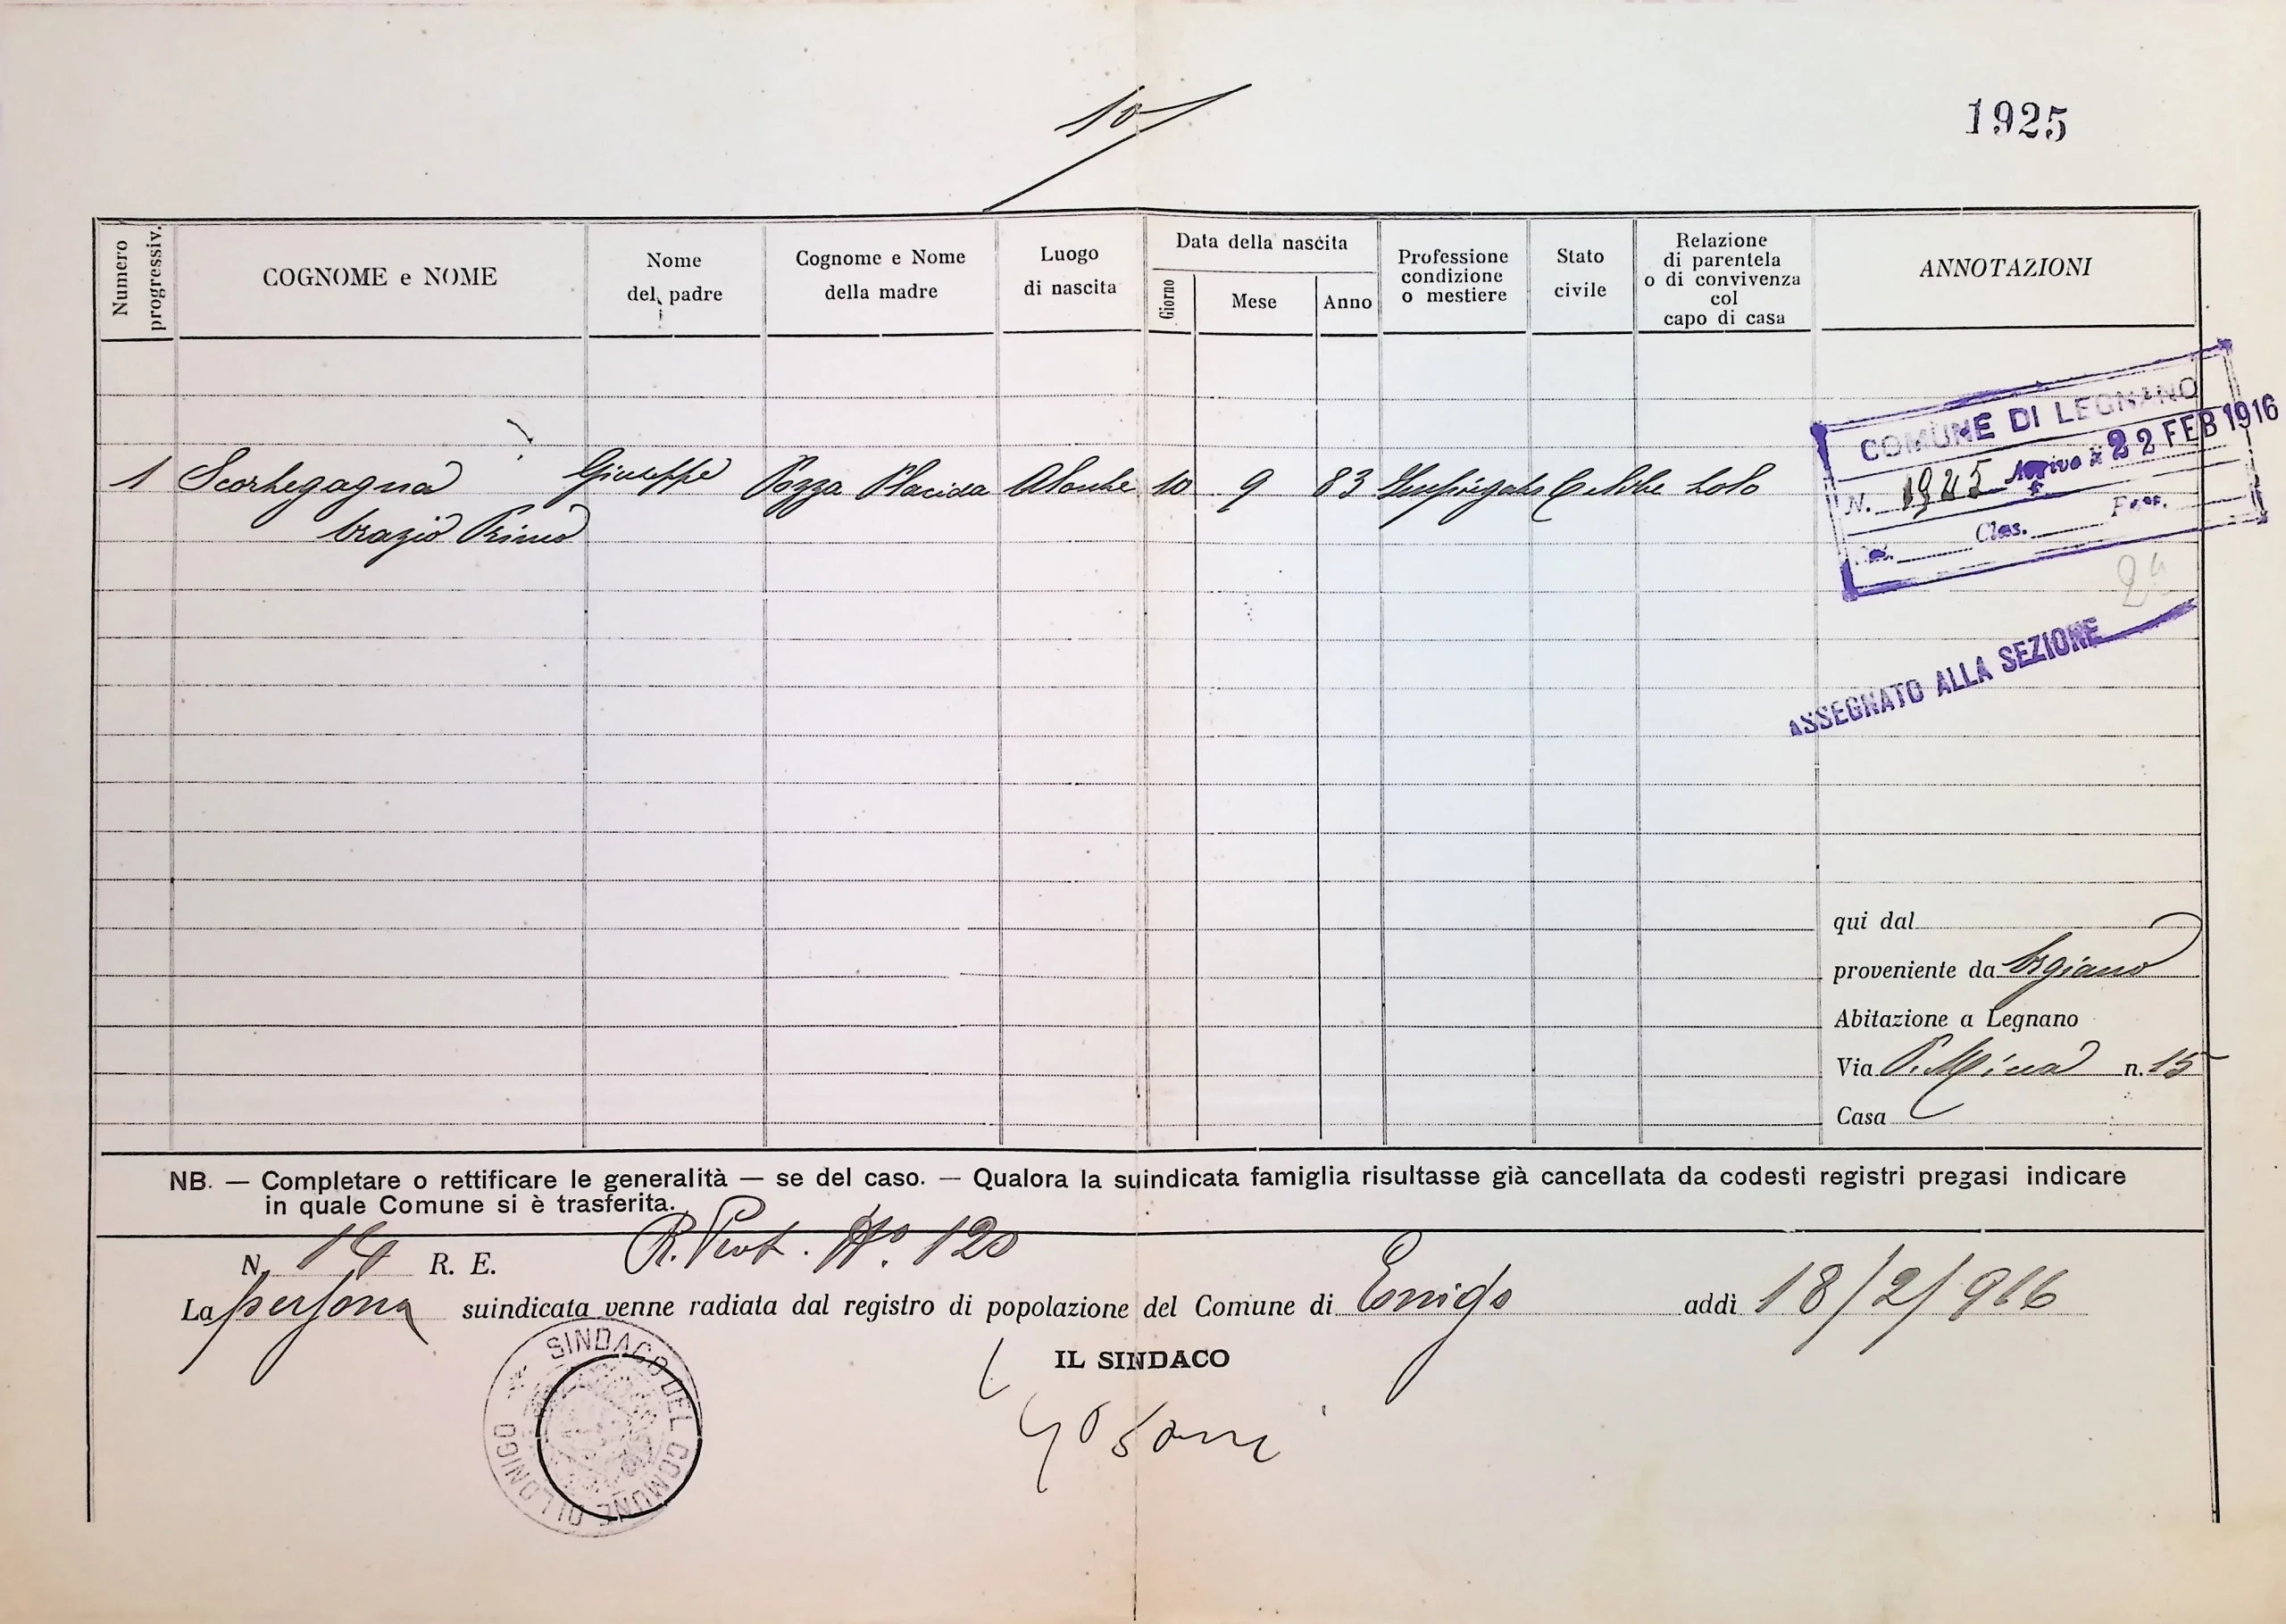 101
1925
Numero progressiv.
COGNOME e NOME
Nome del padre
Cognome e Nome della madre
Luogo di nascita
Data della nascita
Giorno
Mese
Anno
Professione condizione o mestiere
Stato civile
Relazione di parentela o di convivenza col capo di casa
ANNOTAZIONI
COMUNE DI LEGNANO
N. 1925 Arrivo 22 FEB 1916
Cat. Clas. Fasc.
ASSEGNATO ALLA SEZIONE
2ª
1 Scortegagna Giuseppe Pozza Placida Alonte 10 9 83 Celibe Solo
Orazio Primo
qui dal
proveniente da Orgiano
Abitazione a Legnano
Via P. Mica n. 15
Casa
NB. — Completare o rettificare le generalità — se del caso. — Qualora la suindicata famiglia risultasse già cancellata da codesti registri pregasi indicare
in quale Comune si è trasferita.
N. 14 R. E. R. Prot. N° 120
La persona suindicata venne radiata dal registro di popolazione del Comune di Lonigo addì 18/2/916
IL SINDACO
SINDACO DEL COMUNE DI LONIGO